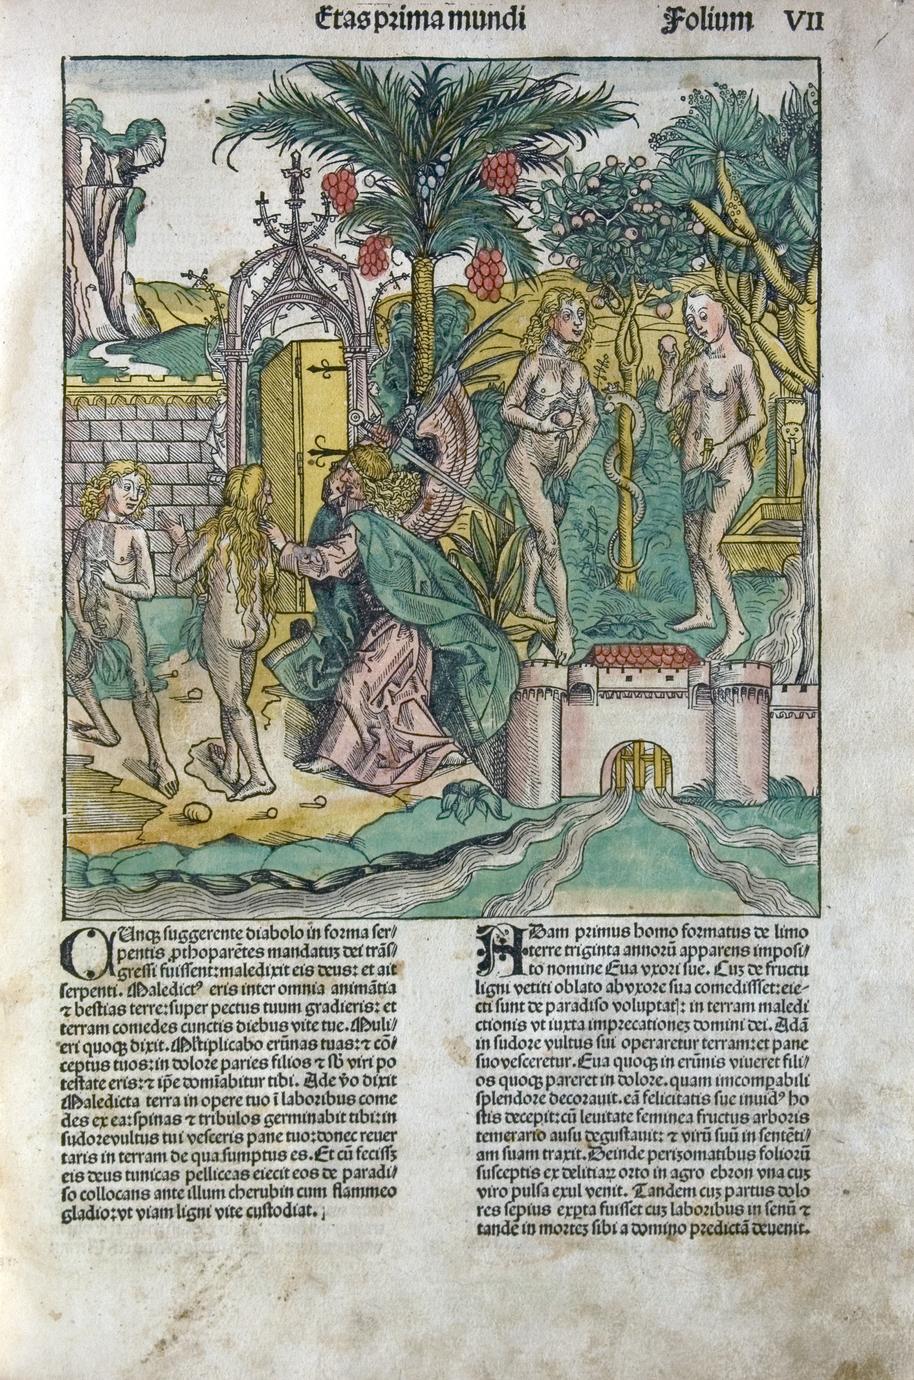 Etas prima mundi
Folium VII
CUnqꝫ suggerente diabolo in forma ser/
pentis ꝓthoparẽtes mandatuꝫ dei trãs/
gressi fuissent: maledixit eis deus: et ait
serpenti. Maledictꝰ eris inter omnia animãtia
⁊ bestias terre: super pectus tuum gradieris: et
terram comedes cunctis diebus vite tue. Muli/
eri quoqꝫ dixit. Mĺtiplicabo erũnas tuas: ⁊ cõ/
ceptus tuos: in dolore paries filios ⁊ sb̾ viri po
testate eris: ⁊ ip̃e domĩabitur tibi. Ade ṽo dixit
Maledicta terra in opere tuo ĩ laboribus come
des ex ea: spinas ⁊ tribulos germinabit tibi: in
sudore vultus tui vesceris pane tuo: donec reuer
taris in terram de qua sumptus es. Et cũ fecissꝫ
eis deus tunicas pelliceas eiecit eos de paradi/
so collocans ante illum cherubin cum flammeo
gladio: vt viam ligni vite custodiat.
ADam primus homo formatus de limo
terre triginta annorũ apparens imposi/
to nomine Eua vxori sue. Cuꝫ de fructu
ligni vetiti oblato ab vxore sua comedissꝫet: eie/
cti sunt de paradiso voluptatꝭ: in terram maledi
ctionis vt iuxta imprecationeꝫ domini dei. Adã
in sudore vultus sui operaretur terram: et pane
suo vesceretur. Eua quoqꝫ in erũnis viueret fili/
os quoqꝫ pareret in dolore. quam incomꝑabili
splendore decorauit. eã felicitatis sue inuidꝰ ho
stis decepit: cũ leuitate feminea fructus arboris
temerario ausu degustauit: ⁊ virũ suũ in sentẽti/
am suam traxit. Deinde perizomatibus foliorũ
susceptis ex delitiaꝝ orto in agro ebron vna cuꝫ
viro pulsa exul venit. Tandem cuꝫ partus dolo
res sepius exꝑta fuisset cuꝫ laboribus in senũ ⁊
tandẽ in morteꝫ sibi a domino predictã deuenit.